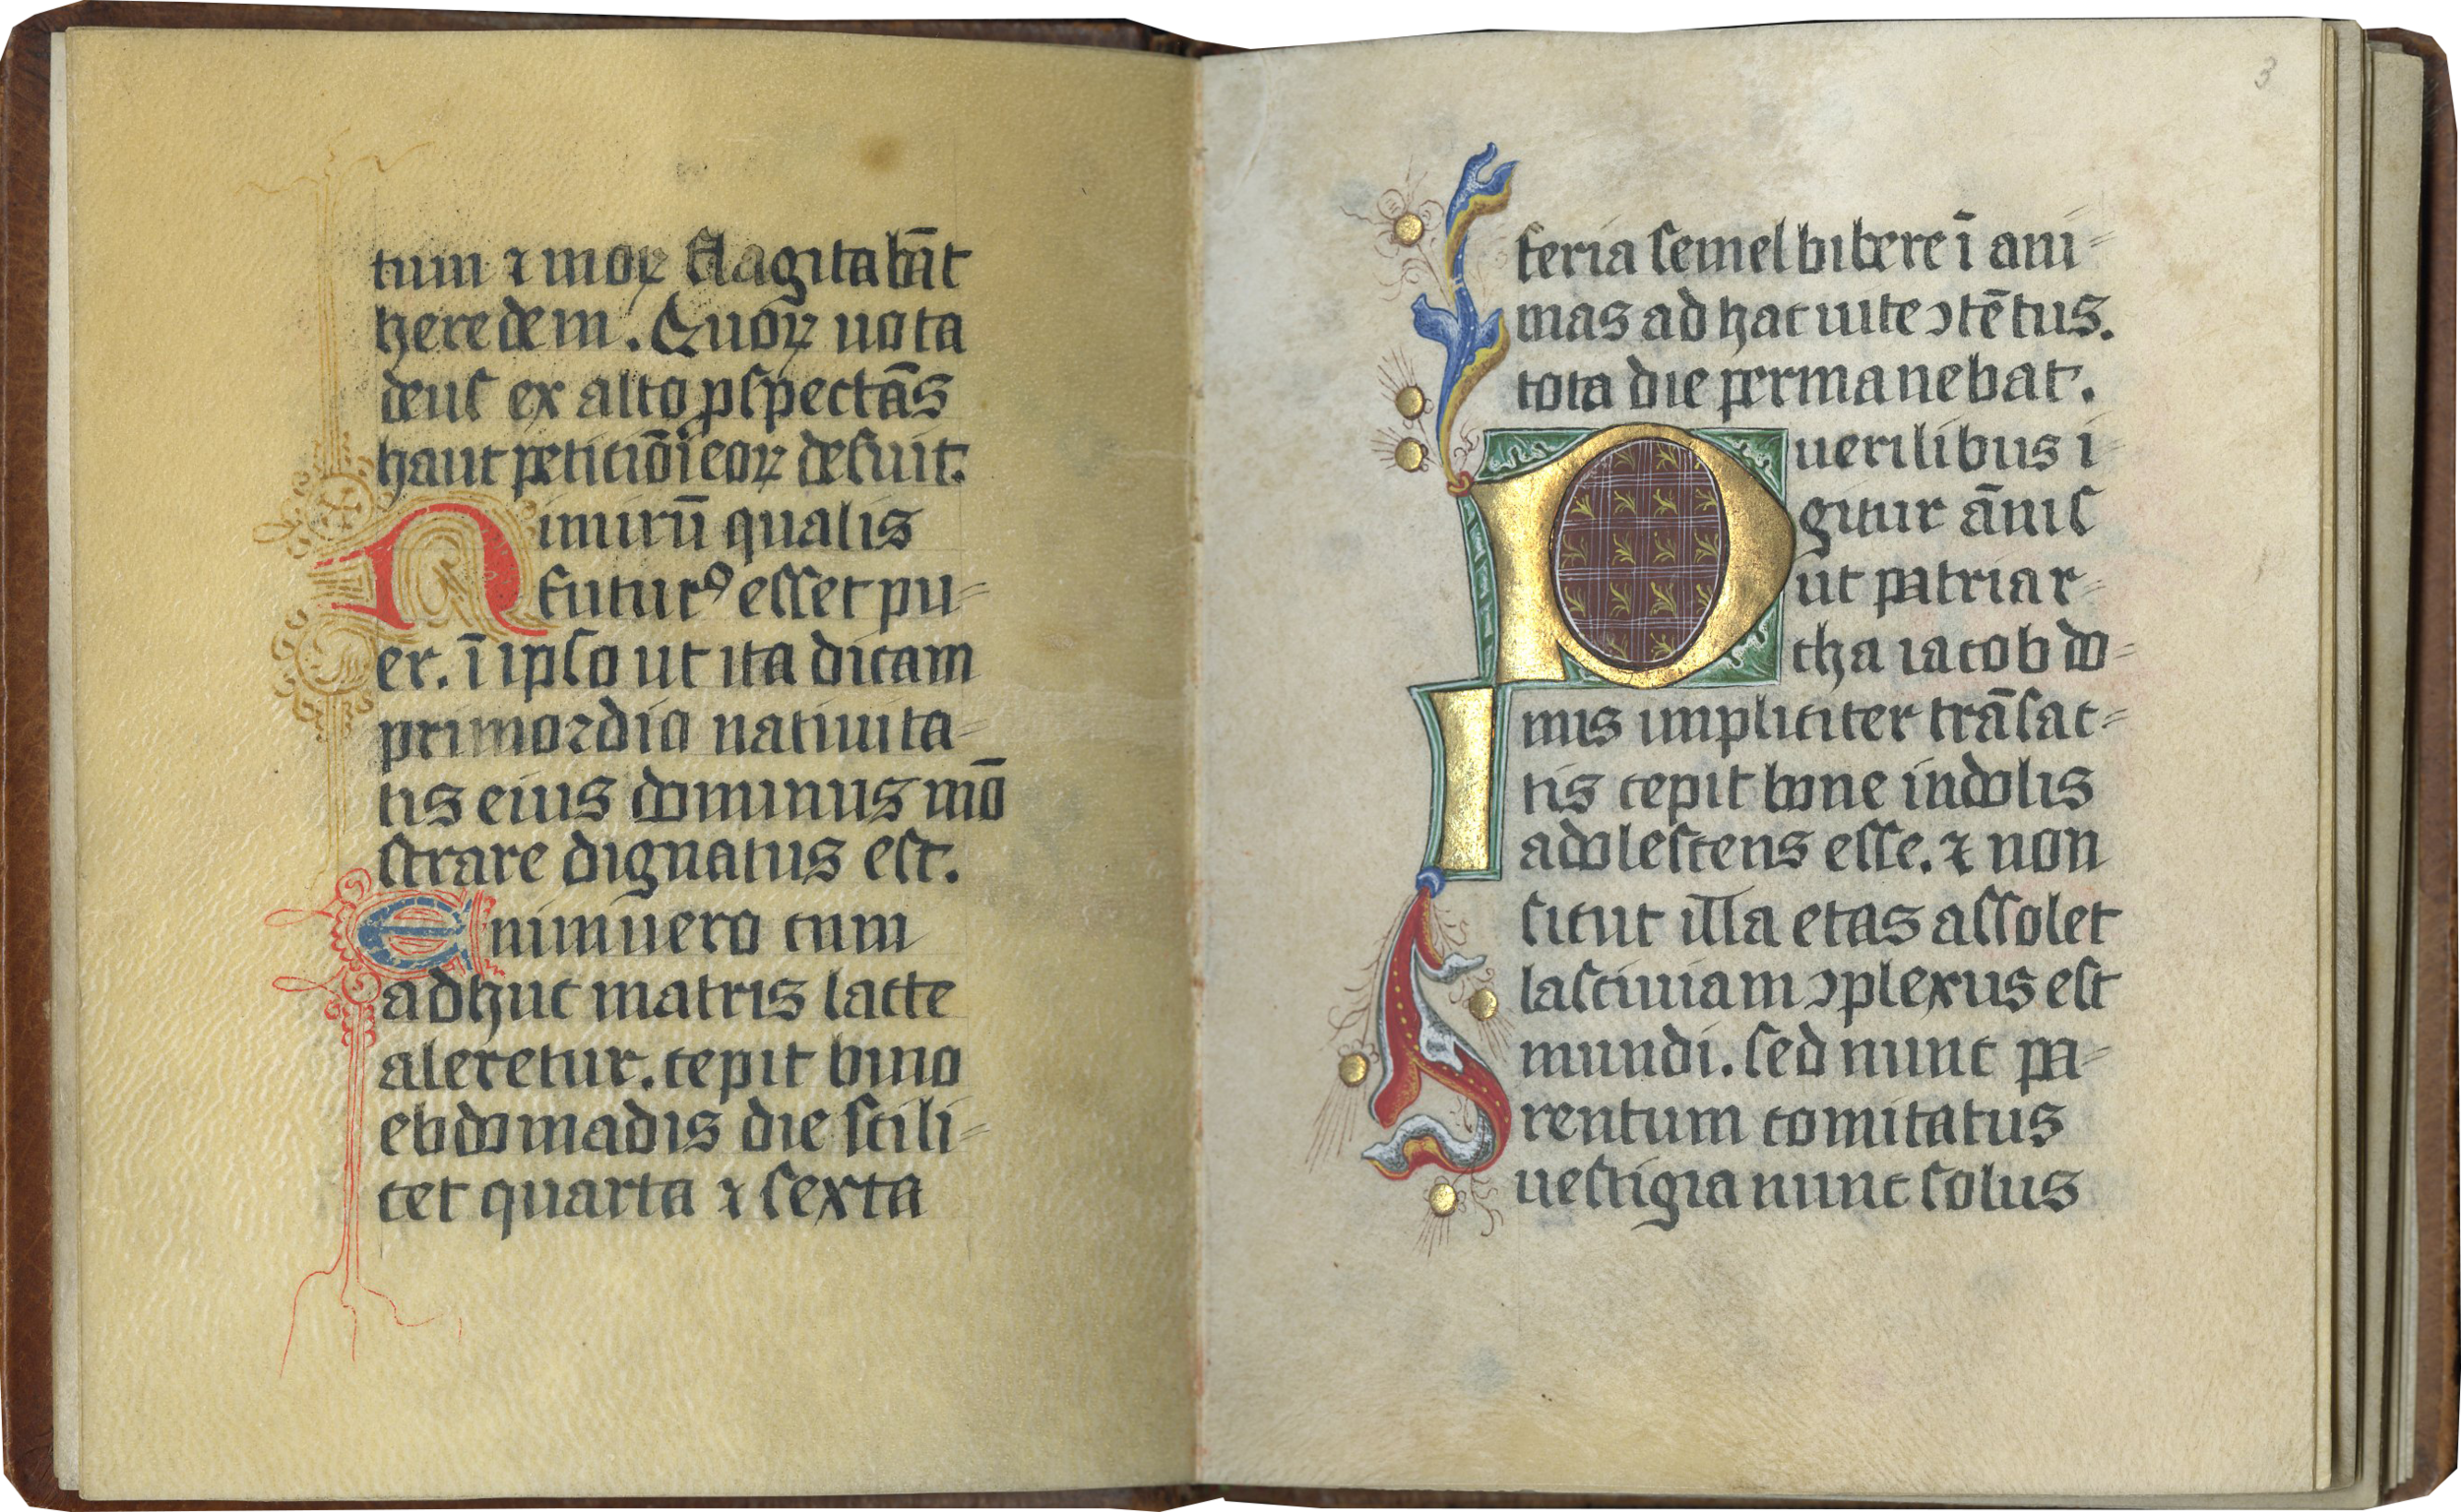 tum ⁊ moꝝ flagitabāt
heredem. Quoꝝ uota
deus ex alto ꝓspectās
haut petitiōi eoꝝ defuit.
Nimirū qualis
futurꝰ esset pu=
er. ī ipso ut ita dicam
primordio natiuita=
tis eius dominus mō
strare dignatus est.
Enimuero cum
adhuc matris lacte
aleretur. cepit bino
ebdomadis die scili=
cet quarta ⁊ sexta
3
feria semel bibere ī ani=
mas ad hac uite ↄtētus.
tota die permanebat.
Puerilibus i=
gitur ānis
ut patriar=
cha iacob do=
mis impliciter trāsac=
tis cepit bone indolis
adolescens esse. ⁊ non
sicut illa etas assolet
lasciuiam ↄplexus est
mundi. sed nunc pa=
rentum comitatus
uestigia nunc solus